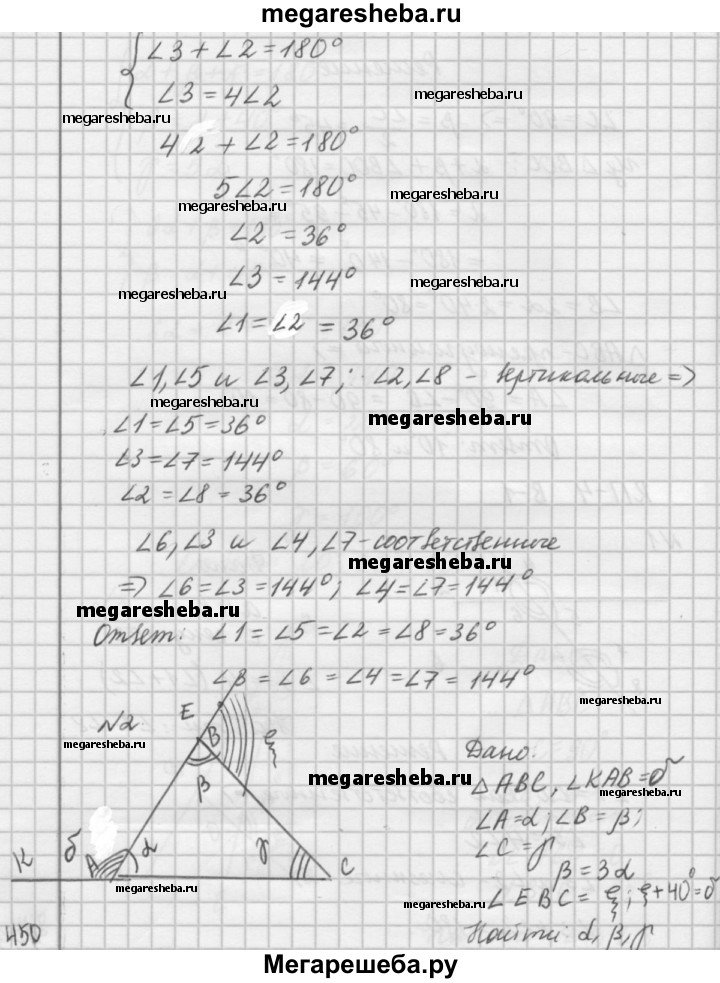 megaresheba.ru
∠3 + ∠2 = 180°
∠3 = 4∠2
megaresheba.ru
megaresheba.ru
4 2 + ∠2 = 180°
5∠2 = 180°
megaresheba.ru
megaresheba.ru
∠2 = 36°
∠3 = 144°
megaresheba.ru
megaresheba.ru
∠1 = ∠2 = 36°
∠1, ∠5 и ∠3, ∠7; ∠2, ∠8 - вертикальные =>
megaresheba.ru
∠1 = ∠5 = 36°
megaresheba.ru
∠3 = ∠7 = 144°
∠2 = ∠8 = 36°
∠6, ∠3 и ∠4, ∠7 - соответственные
megaresheba.ru
=> ∠6 = ∠3 = 144°; ∠4 = ∠7 = 144°
megaresheba.ru
Ответ: ∠1 = ∠5 = ∠2 = ∠8 = 36°
∠3 = ∠6 = ∠4 = ∠7 = 144°
N2
E
B
ξ
megaresheba.ru
β
megaresheba.ru
K
б
A
α
γ
C
Дано:
△ABC, ∠KAB = б
megaresheba.ru
∠A = α; ∠B = β;
∠C = γ
β = 3α
∠EBC = ξ; ξ + 40° = б
megaresheba.ru
Найти: α, β, γ
450
Мегарешеба.ру